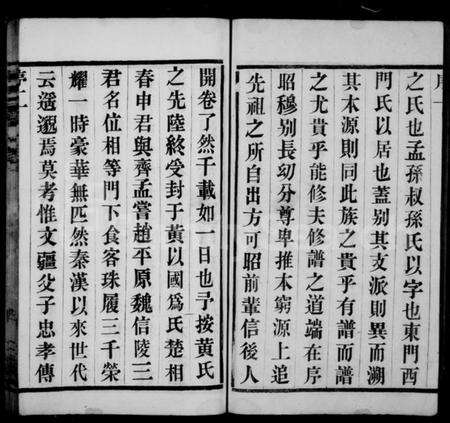 之氏也孟孫叔孫氏以字也東門西
門氏以居也蓋别其支派則異而溯
其本源則同此族之貴乎有譜而譜
之尤貴乎能修夫修譜之道端在序
昭穆别長幼分尊卑推本窮源上追
先祖之所自出方可昭前輩信後人
開卷了然千載如一日也予按黄氏
之先陸終受封于黄以國爲氏楚相
春申君與齊孟嘗趙平原魏信陵三
君名位相等門下食客珠履三千榮
耀一時豪華無匹然秦漢以來世代
云遥邈焉莫考惟文疆父子忠孝傳
序二